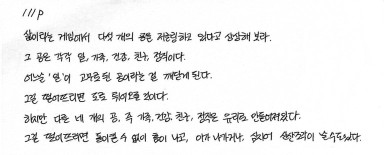 111p
삶이라는 게임에서 다섯 개의 공을 저글링하고 있다고 상상해 보라.
그 공은 각각 일, 가족, 건강, 친구, 정직이다.
어느날 '일'이 고무로 된 공이라는 걸 깨닫게 된다.
그걸 떨어뜨리면 도로 튀어오를 것이다.
하지만 다른 네 개의 공, 즉 가족, 건강, 친구, 정직은 유리로 만들어져있다.
그걸 떨어뜨리면 돌이킬 수 없이 흠이 나고, 이가 나가거나, 심지어 산산조각이 날 수도있다.